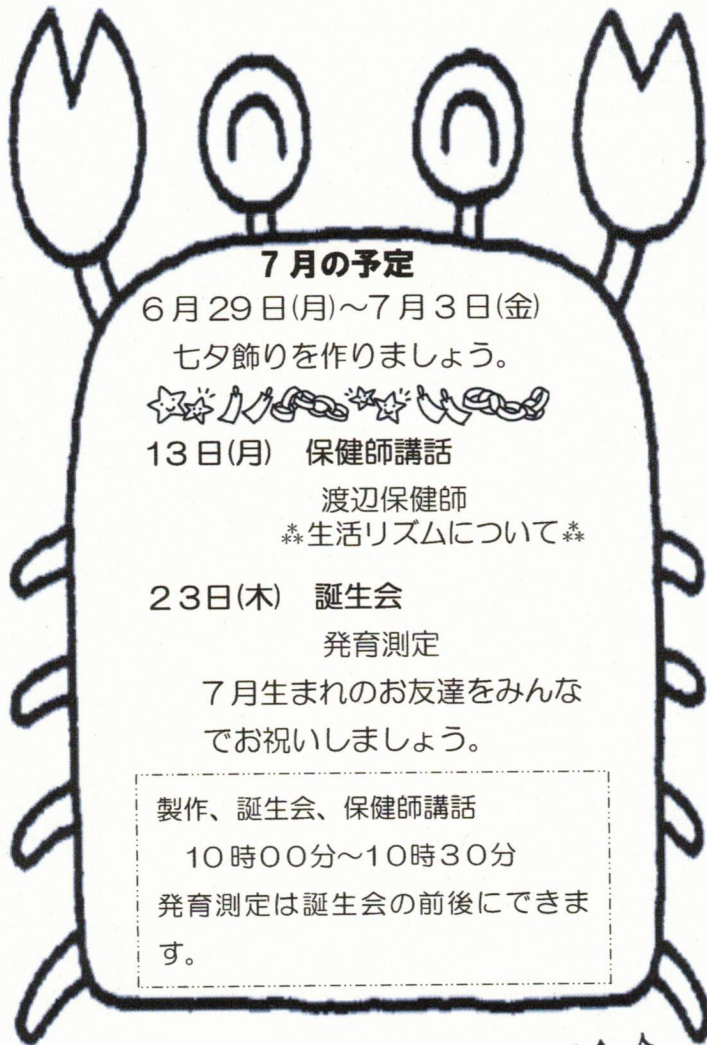 7月の予定
6月29日(月)～7月3日(金)
七夕飾りを作りましょう。
13日(月)　保健師講話
渡辺保健師
⁂生活リズムについて⁂
23日(木)　誕生会
発育測定
7月生まれのお友達をみんな
でお祝いしましょう。
製作、誕生会、保健師講話
10時00分～10時30分
発育測定は誕生会の前後にできま
す。